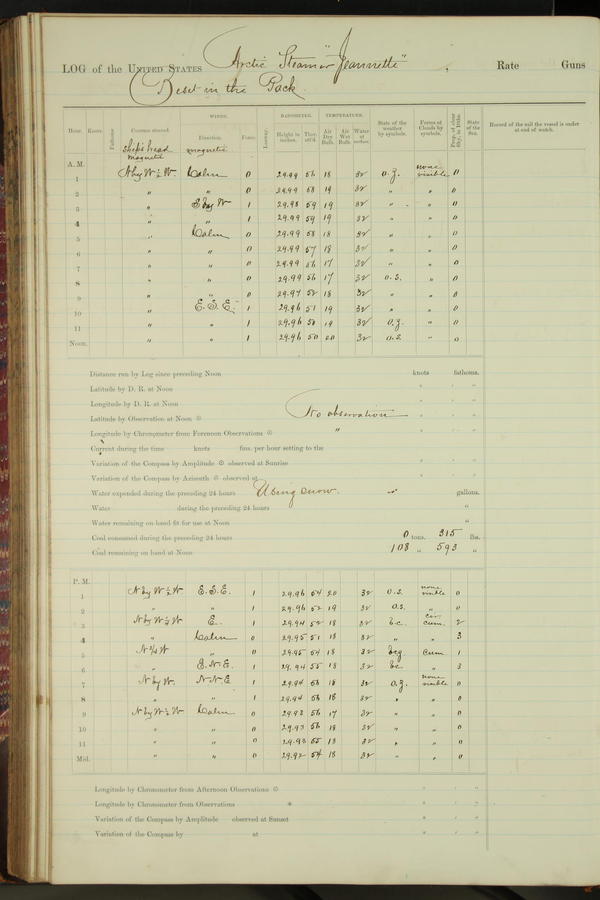 LOG of the UNITED STATES Arctic Steamer "Jeannette", Rate Guns
Beset in the Pack.
WINDS. BAROMETER. TEMPERATURE.
Hour. Knots. Fathoms. Courses steered. Direction. Force. Leeway. Height in inches. Ther. att'd. Air Dry Bulb. Air Wet Bulb. Water at surface. State of the weather by symbols. Forms of Clouds by symbols. Prop. of clear sky, in 10ths. State of the Sea. Record of the sail the vessel is under at end of watch.
ship's head magnetic magnetic
A.M.
1 N by W ½ W Calm 0 29.99 56 18 32 o.z. none visible 0
2 " " 0 29.99 58 19 32 " " 0
3 " S by W 1 29.98 59 19 32 " " 0
4 " " 1 29.99 59 19 32 " " 0
5 " Calm 0 29.99 58 18 32 " " 0
6 " " 0 29.99 57 18 32 " " 0
7 " " 0 29.99 56 17 32 " " 0
8 " " 0 29.99 56 17 32 o.s. " 0
9 " " 0 29.97 52 18 32 " " 0
10 " E.S.E. 1 29.96 51 19 32 " " 0
11 " " 1 29.96 50 19 32 o.z. " 0
Noon. " " 1 29.96 50 20 32 o.s. " 0
Distance run by Log since preceding Noon knots fathoms.
Latitude by D. R. at Noon
Longitude by D. R. at Noon
Latitude by Observation at Noon No observation
Longitude by Chronometer from Forenoon Observations "
Current during the time knots fms. per hour setting to the
Variation of the Compass by Amplitude observed at Sunrise
Variation of the Compass by Azimuth observed at
Water expended during the preceding 24 hours Using snow. gallons.
Water during the preceding 24 hours "
Water remaining on hand fit for use at Noon "
Coal consumed during the preceding 24 hours 0 tons. 315 lbs.
Coal remaining on hand at Noon 108 " 593 "
P.M.
1 N by W ½ W E.S.E. 1 29.96 54 20 32 o.s. none visible 0
2 " " 1 29.96 52 19 32 o.s. " 0
3 N by W ½ W E. 1 29.94 52 18 32 b.c. cir. cum. 2
4 " Calm 0 29.95 51 18 32 " " 3
5 N ¾ W " 0 29.95 54 18 32 bcz cum 1
6 " E.N.E. 1 29.94 55 18 32 bc " 3
7 N by W. N.N.E 1 29.94 58 18 32 o.z. none visible 0
8 " " 1 29.94 56 18 32 " " 0
9 N by W ½ W Calm 0 29.93 56 17 32 " " 0
10 " " 0 29.93 56 18 32 " " 0
11 " " 0 29.93 55 18 32 " " 0
Mid. " " 0 29.92 54 18 32 " " 0
Longitude by Chronometer from Afternoon Observations
Longitude by Chronometer from Observations *
Variation of the Compass by Amplitude observed at Sunset
Variation of the Compass by at